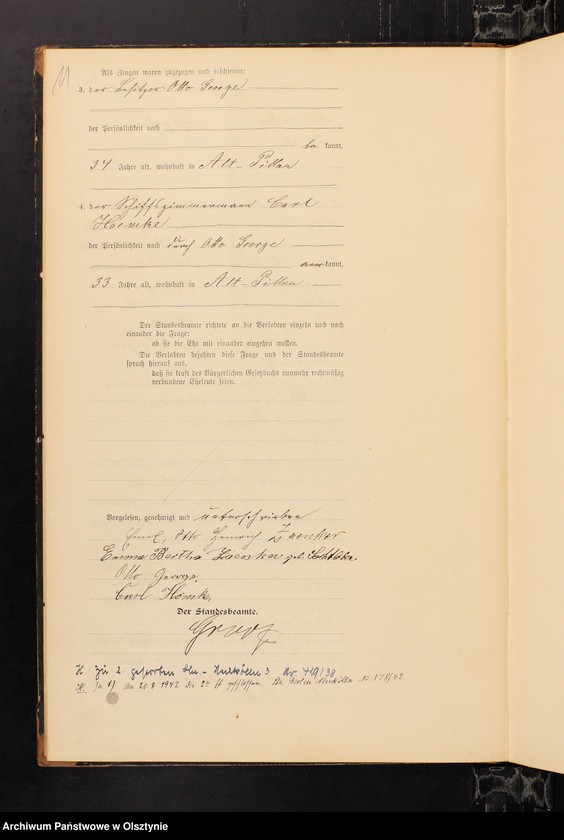 11
Als Zeugen waren zugezogen und erschienen:
3. der Besitzer Otto George
der Persönlichkeit nach
be kannt,
34 Jahre alt, wohnhaft in Alt-Pillau
4. der Schiffszimmermann Carl
Hoemke
der Persönlichkeit nach durch Otto George
kannt,
33 Jahre alt, wohnhaft in Alt-Pillau
Der Standesbeamte richtete an die Verlobten einzeln und nach
einander die Frage:
ob sie die Ehe mit einander eingehen wollen.
Die Verlobten bejahten diese Frage und der Standesbeamte
sprach hierauf aus,
daß sie kraft des Bürgerlichen Gesetzbuchs nunmehr rechtmäßig
verbundene Eheleute seien.
Vorgelesen, genehmigt und unterschrieben
Emil, Otto Heinrich Zaenker
Emma Bertha Zaenker geb.
Otto George.
Carl Hömke
Der Standesbeamte.
H. Zu 2. gestorben Bln.-Neukölln 3 Nr. 419/38
H. Zu 1) am 20.8.1942 die 2te geschlossen. Berlin Neukölln Nr. 178/42
Archiwum Państwowe w Olsztynie